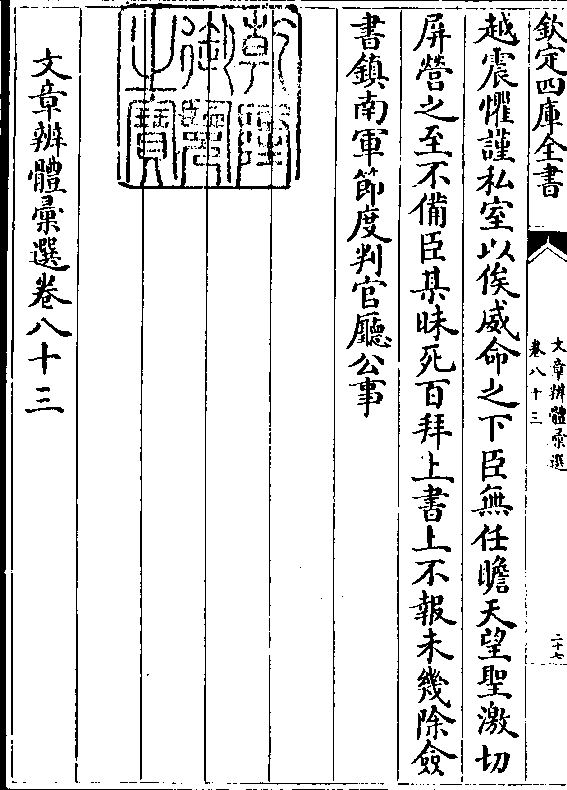 欽定四庫全書
文章辨體彙選
卷八十三
二十七
越震懼謹私室以俟威命之下臣無任瞻天望聖激切
屏營之至不備臣某昧死百拜上書上不報未幾除僉
書鎮南軍節度判官廳公事
乾隆御覽之寶
文章辨體彙選卷八十三